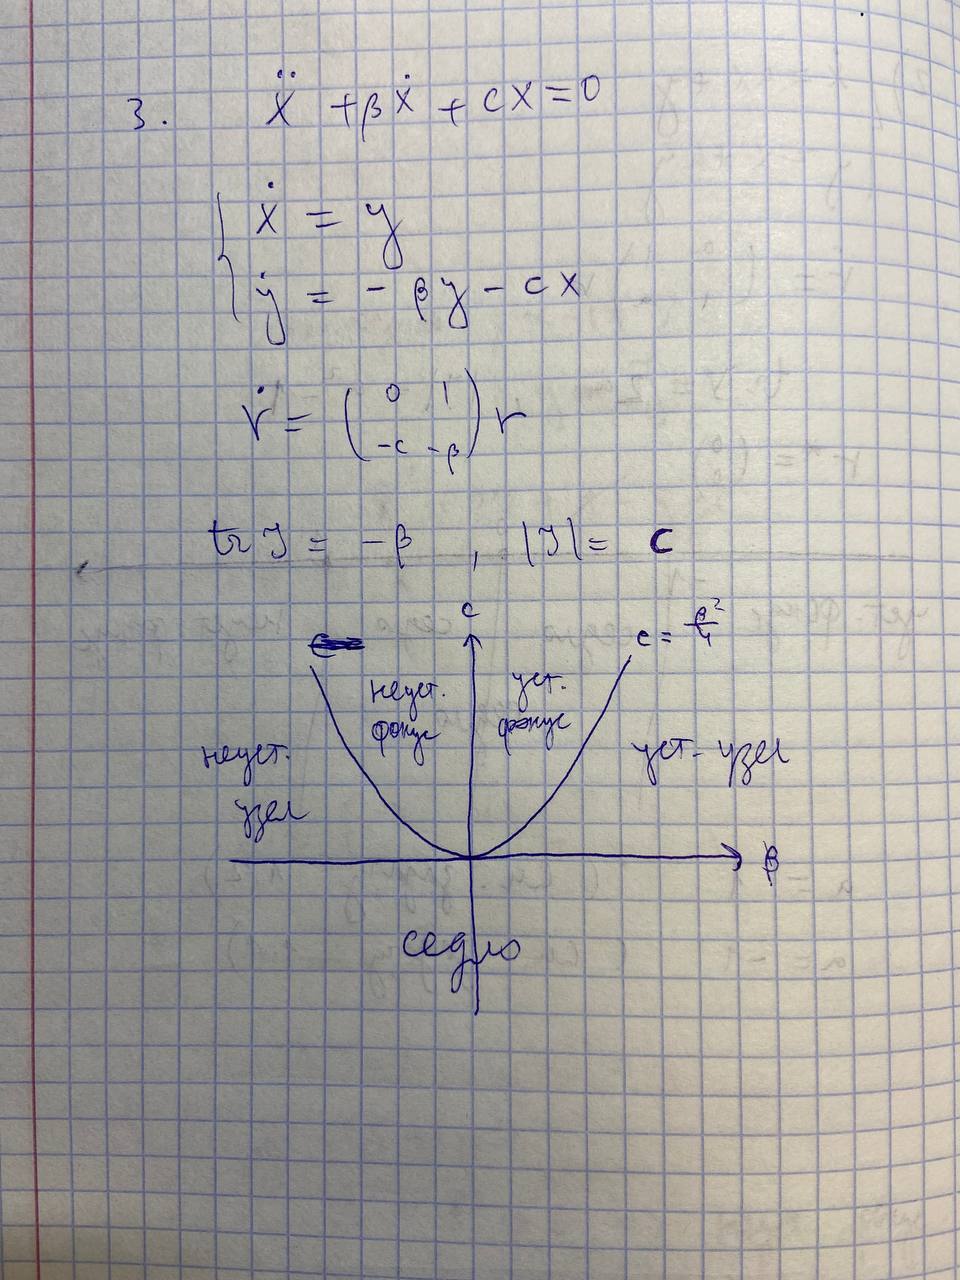 3. ẍ + βẋ + cx = 0
{ ẋ = y
ẏ = - βy - cx
ṙ = ( 0 1
-c -β ) r
tr J = -β , |J| = c
c
c = β²/4
неуст. фокус
уст. фокус
неуст. узел
уст- узел
β
седло